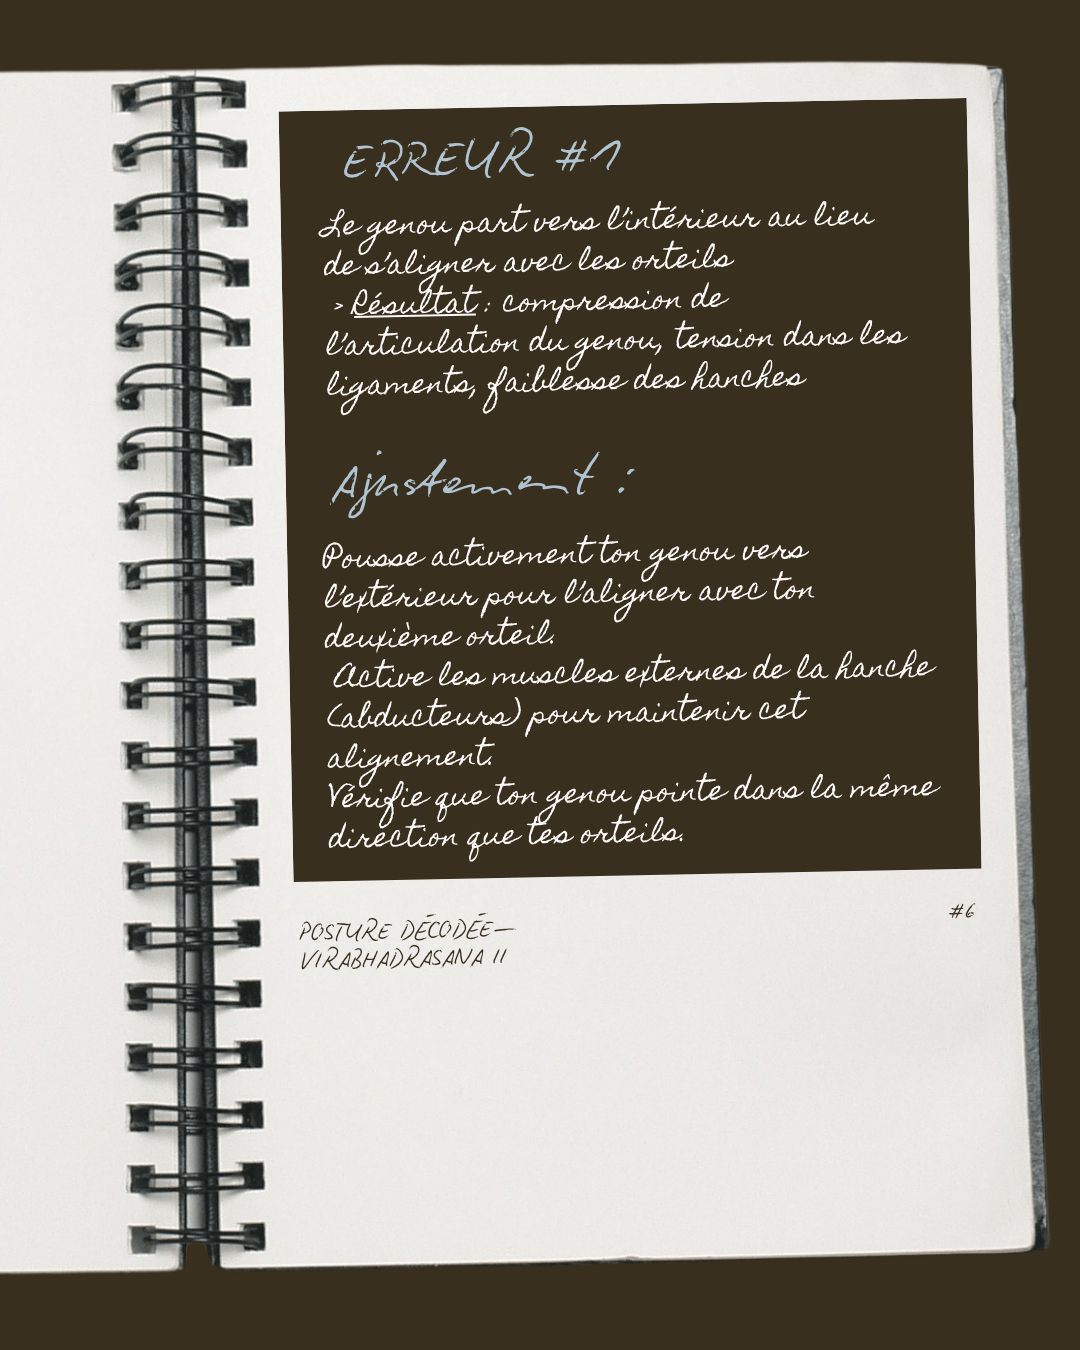 ERREUR #1
Le genou part vers l'intérieur au lieu
de s'aligner avec les orteils
> Résultat : compression de
l'articulation du genou, tension dans les
ligaments, faiblesse des hanches
Ajustement :
Pousse activement ton genou vers
l'extérieur pour l'aligner avec ton
deuxième orteil.
Active les muscles externes de la hanche
(abducteurs) pour maintenir cet
alignement.
Vérifie que ton genou pointe dans la même
direction que tes orteils.
#6
POSTURE DÉCODÉE—
VIRABHADRASANA II